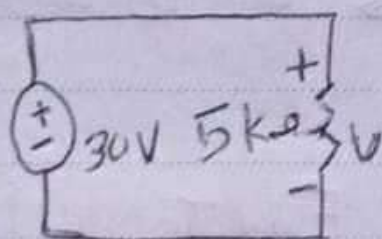 +
+
-
30V 5kΩ V
-